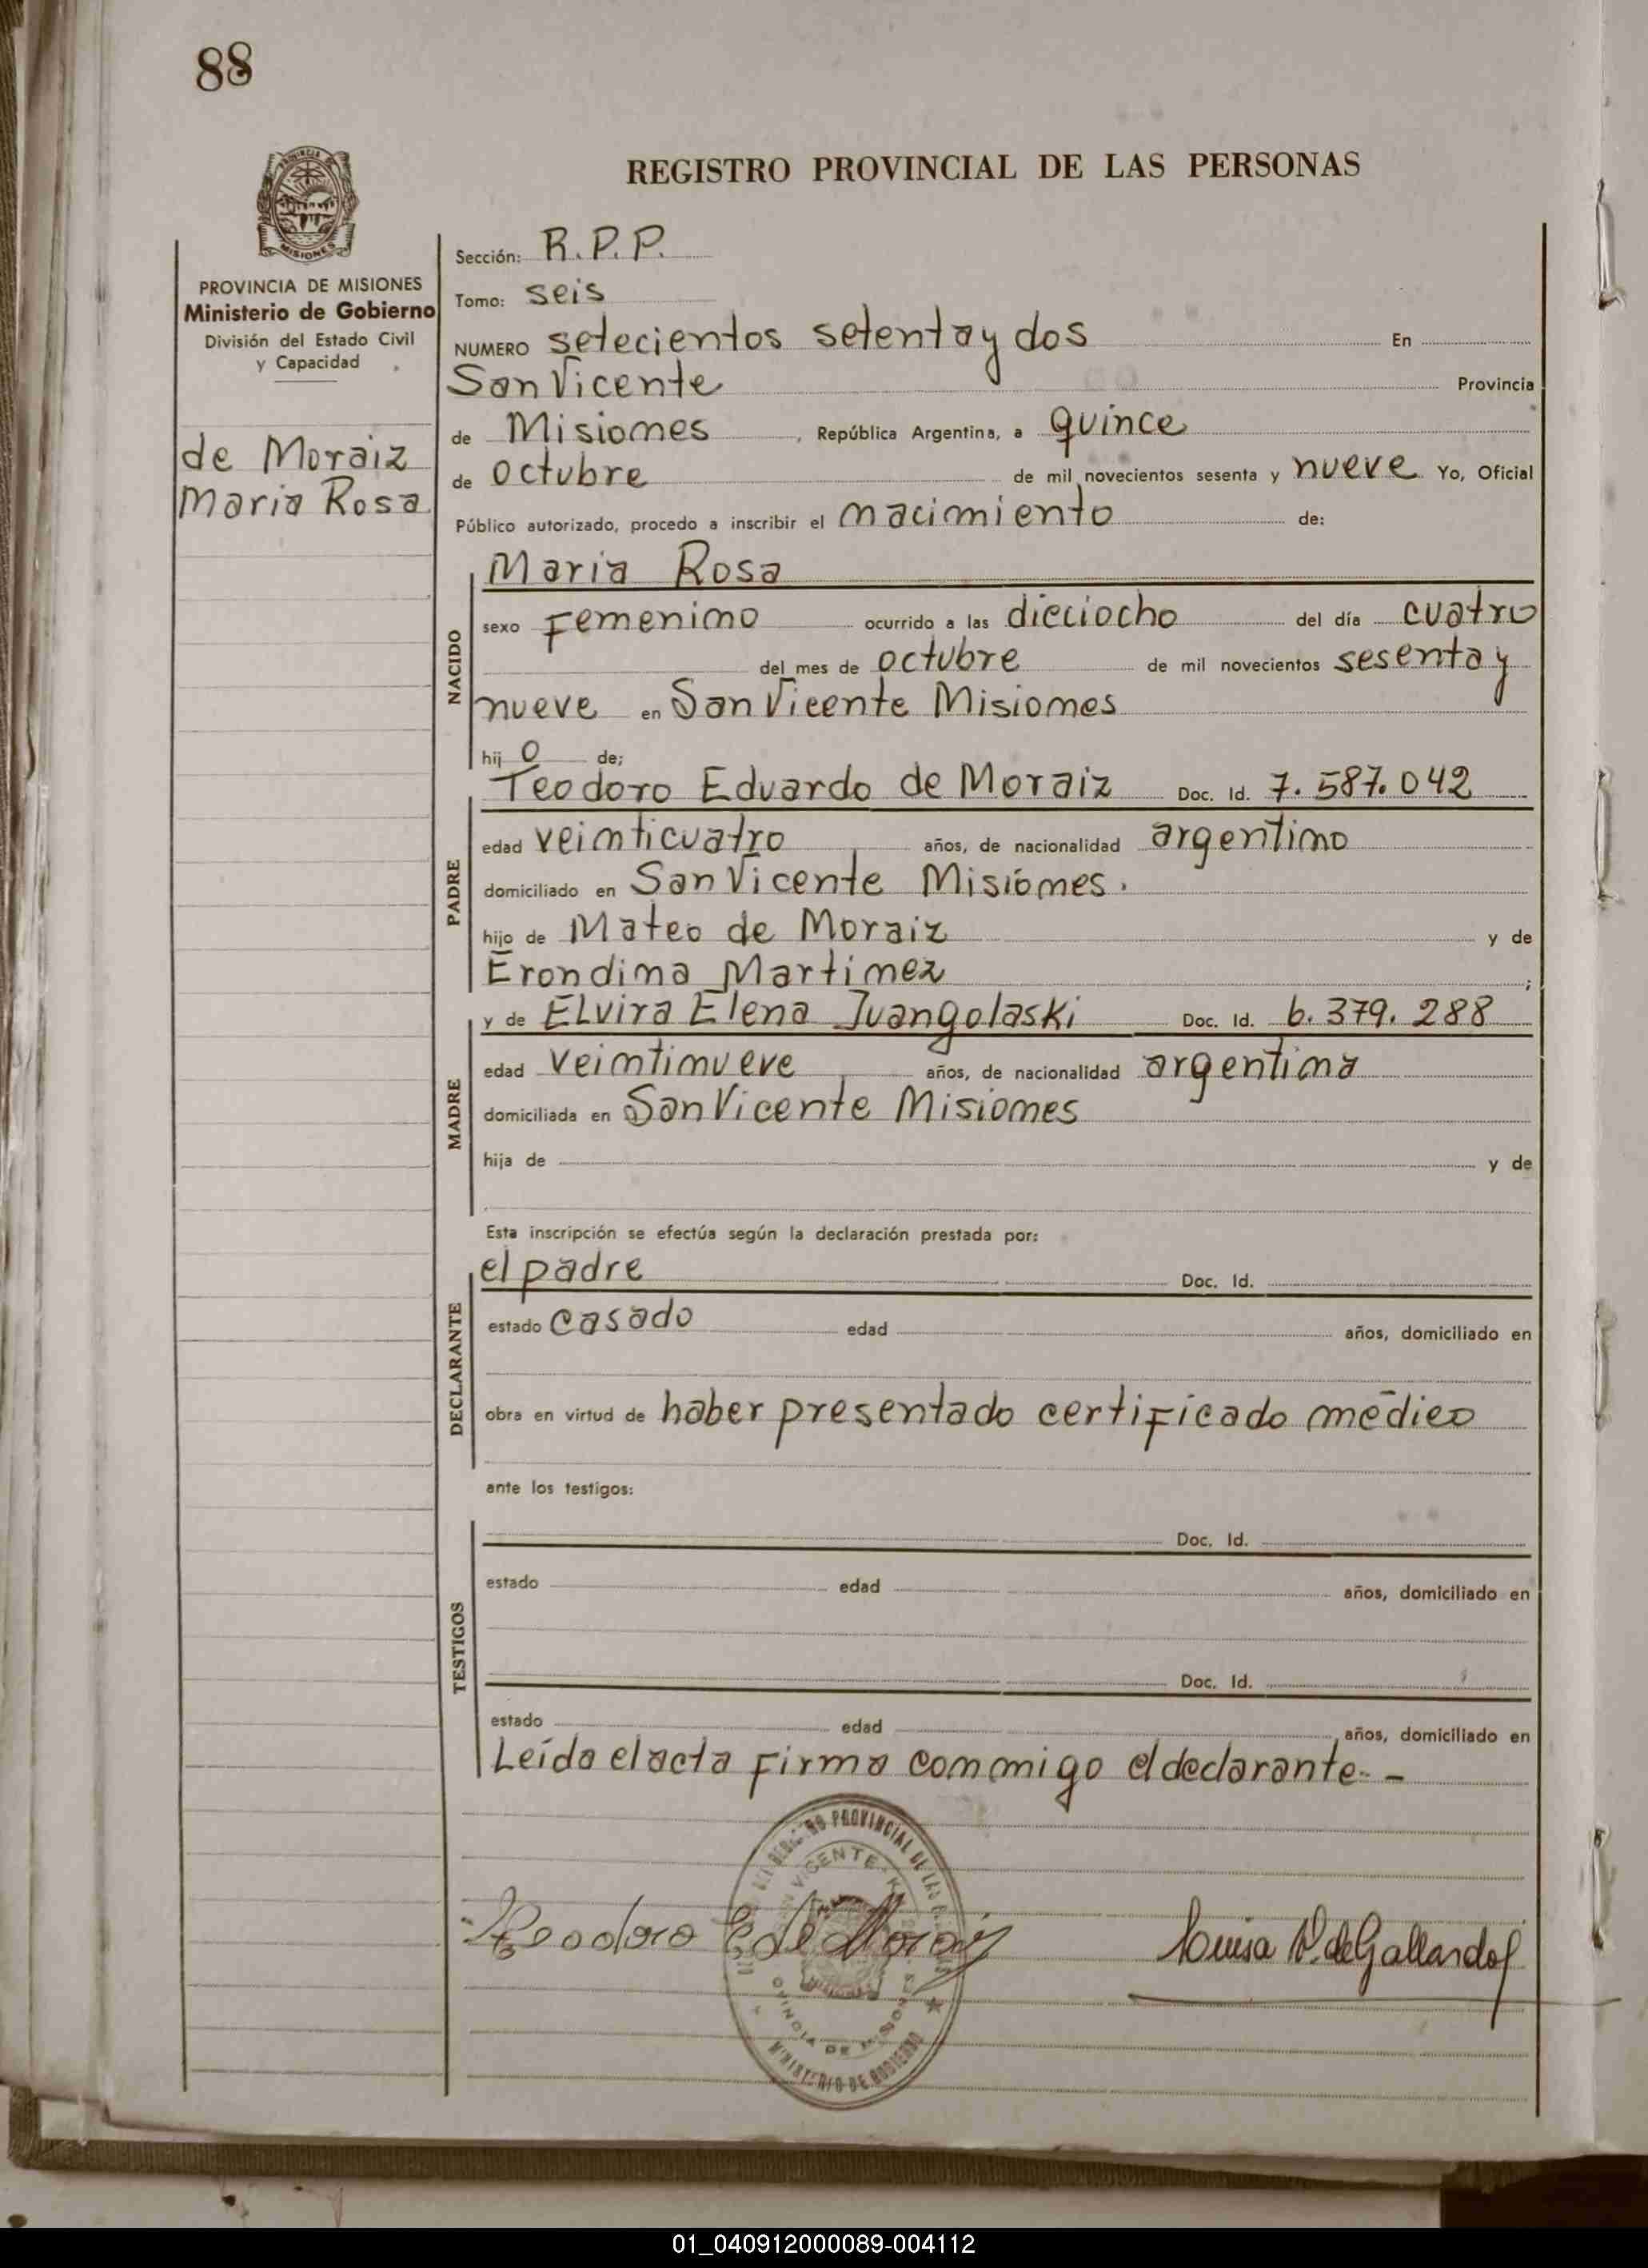 88
REGISTRO PROVINCIAL DE LAS PERSONAS
PROVINCIA DE MISIONES
Ministerio de Gobierno
División del Estado Civil
y Capacidad
de Moraiz
Maria Rosa
Sección: R.P.P.
Tomo: seis
NUMERO setecientos setenta y dos En
San Vicente Provincia
de Misiones, República Argentina, a quince
de octubre de mil novecientos sesenta y nueve Yo, Oficial
Público autorizado, procedo a inscribir el nacimiento de:
NACIDO
Maria Rosa
sexo Femenino ocurrido a las dieciocho del día cuatro
del mes de octubre de mil novecientos sesenta y
nueve en San Vicente Misiones
hij o de;
PADRE
Teodoro Eduardo de Moraiz Doc. Id. 7.587.042
edad veinticuatro años, de nacionalidad argentino
domiciliado en San Vicente Misiones.
hijo de Mateo de Moraiz y de
Erondina Martinez ;
MADRE
y de Elvira Elena Iuangolaski Doc. Id. 6.379.288
edad veintinueve años, de nacionalidad argentina
domiciliada en San Vicente Misiones
hija de y de
Esta inscripción se efectúa según la declaración prestada por:
DECLARANTE
el padre Doc. Id.
estado casado edad años, domiciliado en
obra en virtud de haber presentado certificado médico
ante los testigos:
TESTIGOS
Doc. Id.
estado edad años, domiciliado en
Doc. Id.
estado edad años, domiciliado en
Leída el acta firma conmigo el declarante. -
REGISTRO PROVINCIAL DE LAS
SAN VICENTE
PROVINCIA DE MISIONES
MINISTERIO DE GOBIERNO
Teodoro E de Moraiz
Luisa V. de Gallardo
01_040912000089-004112